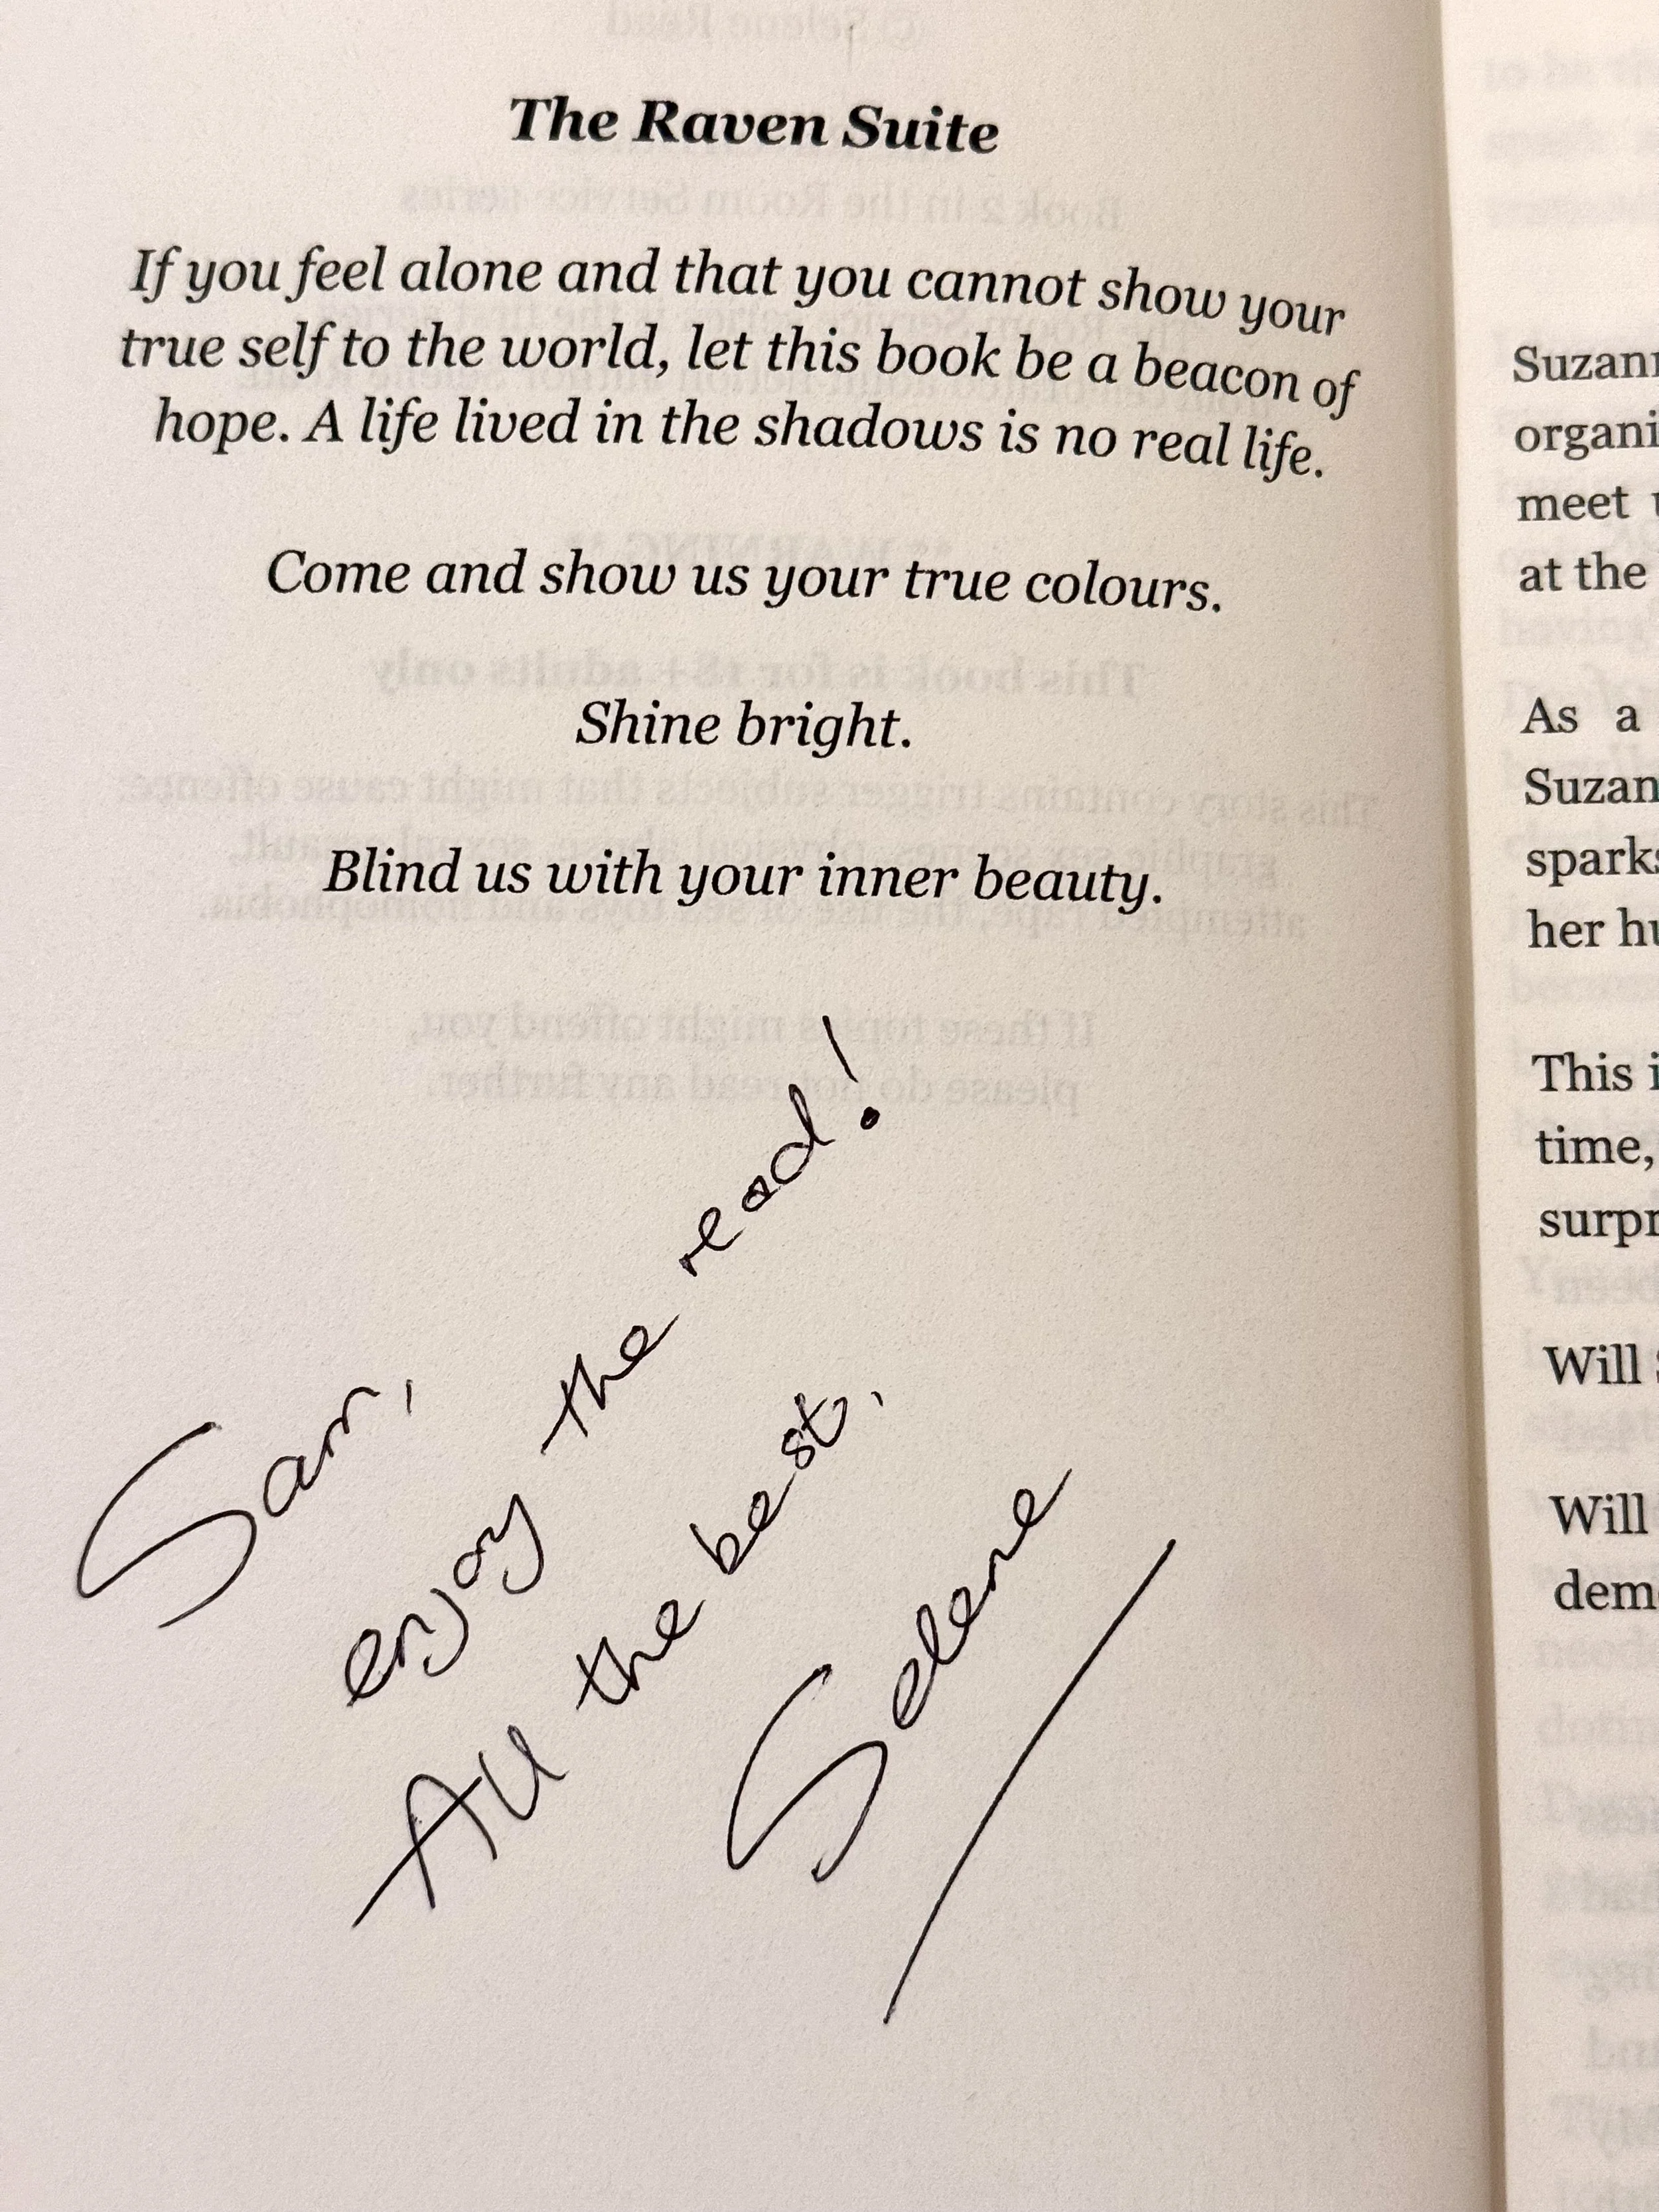 The Raven Suite
If you feel alone and that you cannot show your
true self to the world, let this book be a beacon of
hope. A life lived in the shadows is no real life.
Come and show us your true colours.
Shine bright.
Blind us with your inner beauty.
Sam,
enjoy the read!
All the best,
Selene
at the
As a
her
This
time,
Will
Will